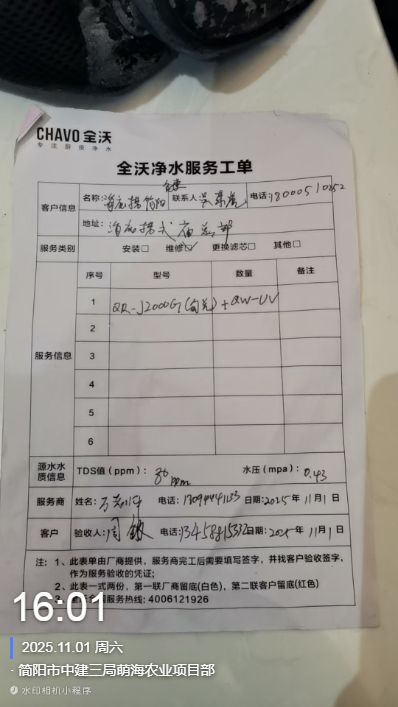 CHAVO 全沃
专注厨房净水
全沃净水服务工单
客户信息
名称: 联系人 电话: 18000510252
地址:
服务类别 安装□ 维修☑ 更换滤芯□ 其他□
服务信息
序号 型号 数量 备注
1 QR-J2000G + QW-UV
2
3
4
5
6
源水水质信息 TDS值（ppm）: 36 ppm 水压（mpa）: 0.43
服务商 姓名: 电话: 日期: 2025年 11月1日
客户 验收人: 电话: 日期: 2025年 11月1日
注: 1、此表单由厂商提供，服务商完工后需要填写签字，并找客户验收签字，
作为服务验收的凭证;
2、此表一式两份，第一联厂商留底(白色)，第二联客户留底(红色)
服务热线: 4006121926
16:01
2025.11.01 周六
· 简阳市中建三局萌海农业项目部
水印相机小程序